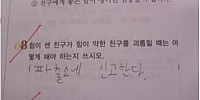 8 힘이 센 친구가 힘이 약한 친구를 괴롭힐 때는 어
떻게 해야 하는지 쓰시오.
( 파출소에 신고한다. )